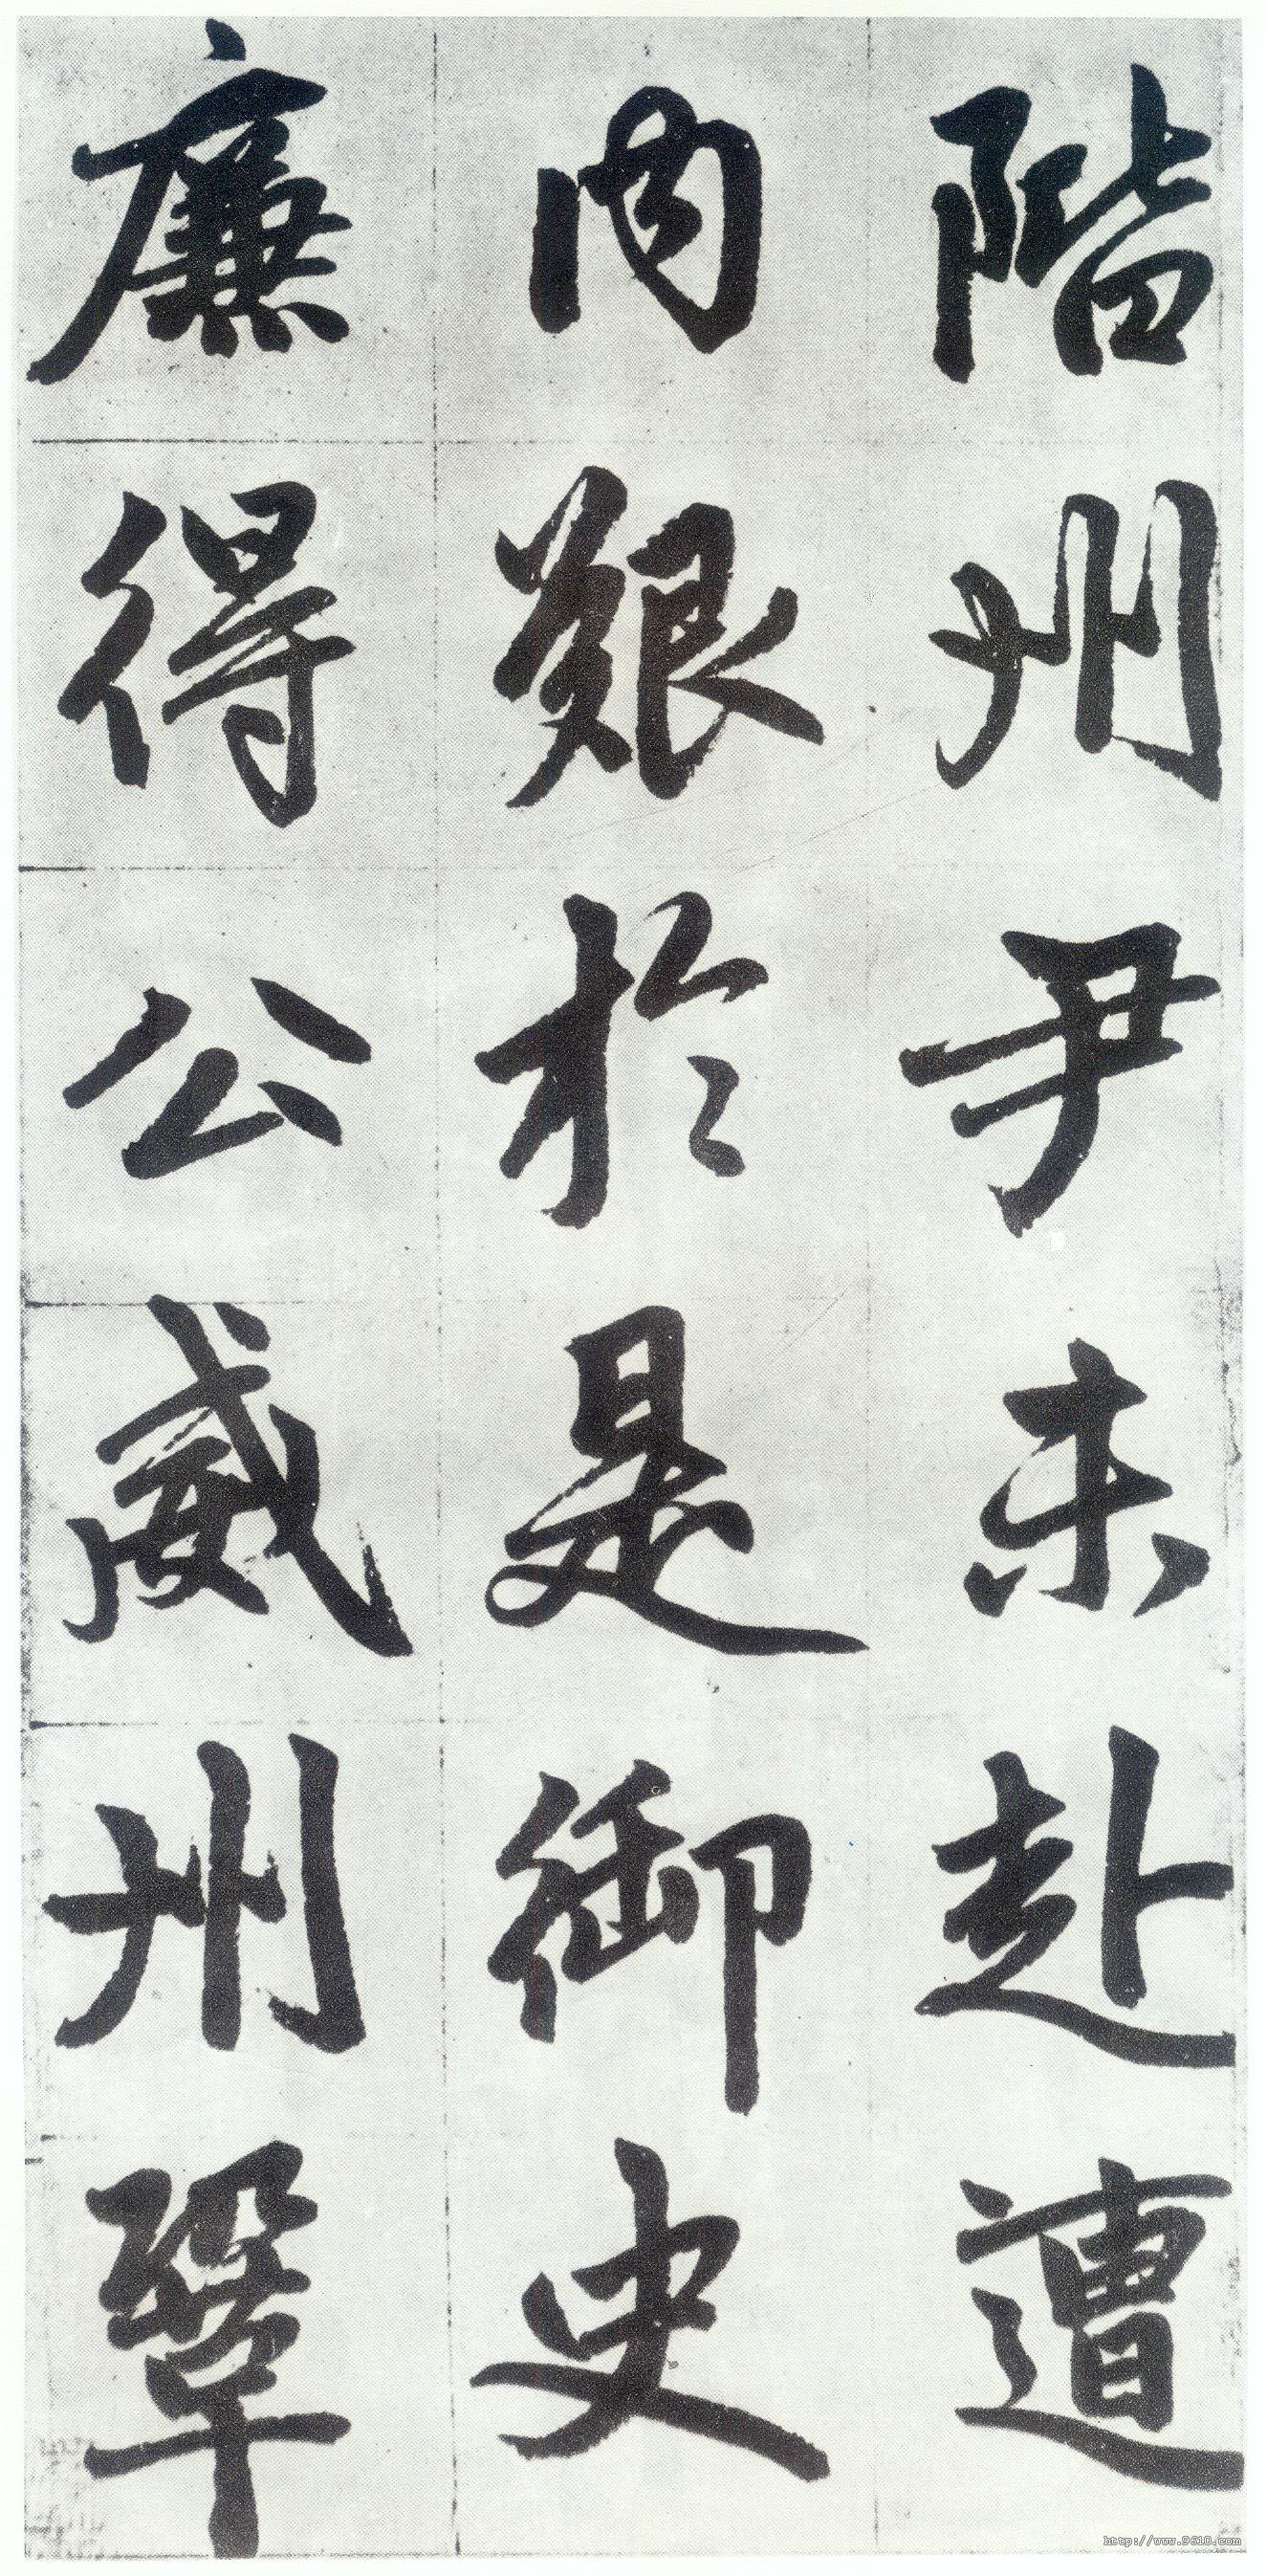 階州尹未赴遭
內艱於是御史
廉得公威州鞏
http://www.9610.com